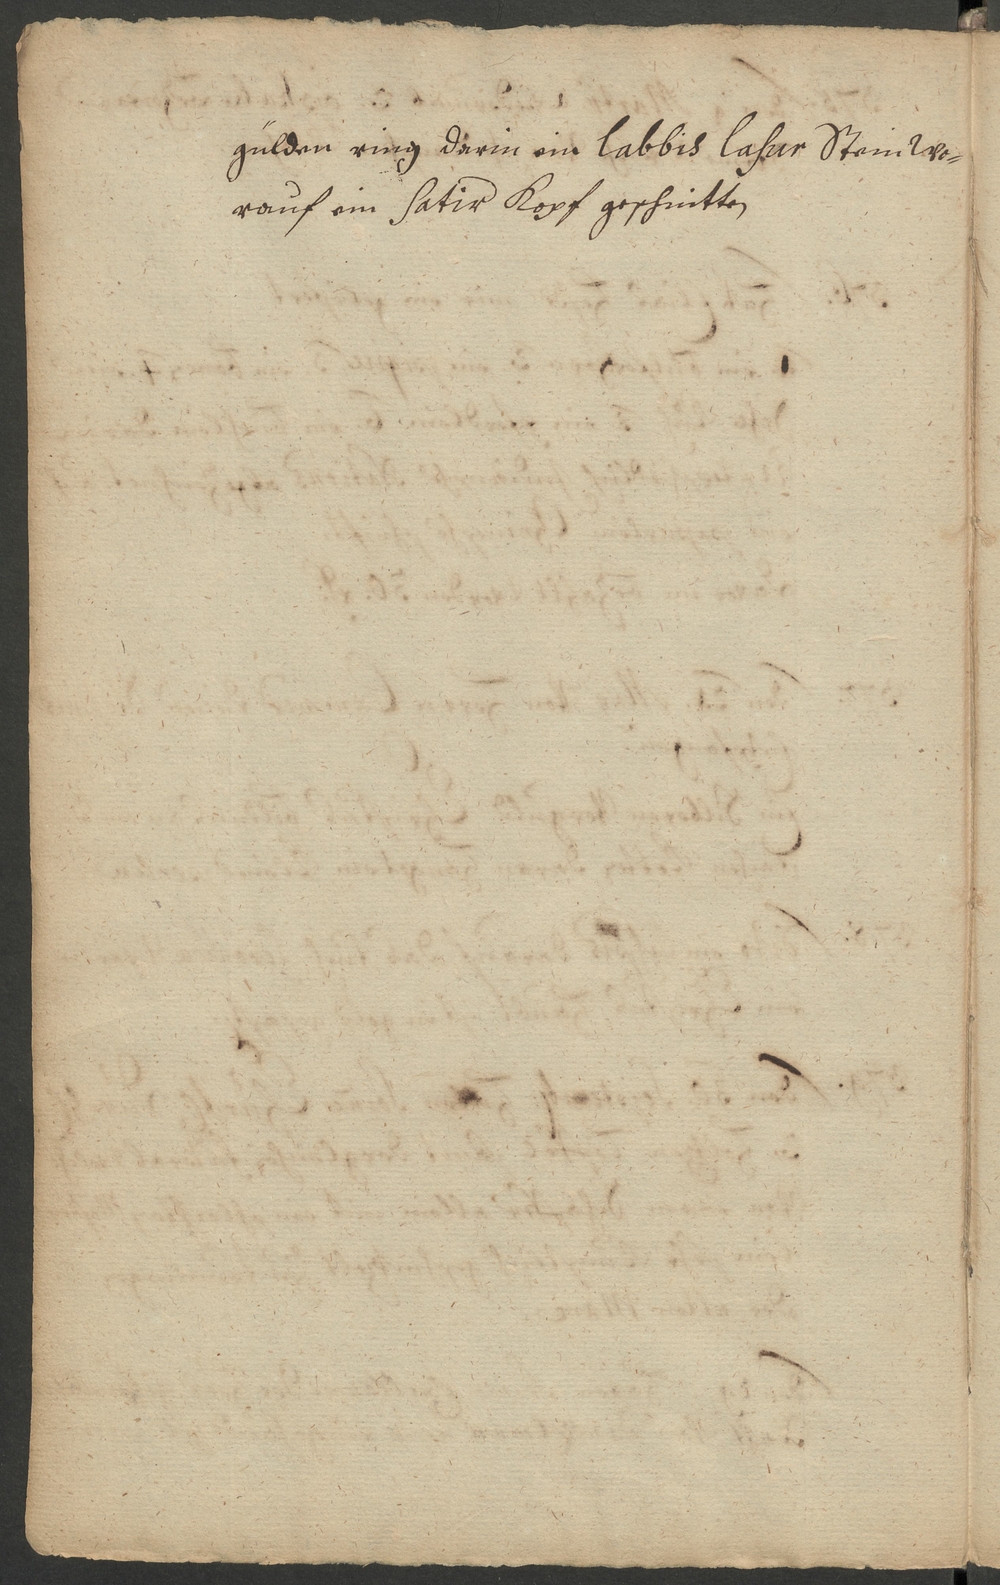 gülden ring darin ein labbis lasur Stein wo=
rauf ein satir Kopf geschnitten